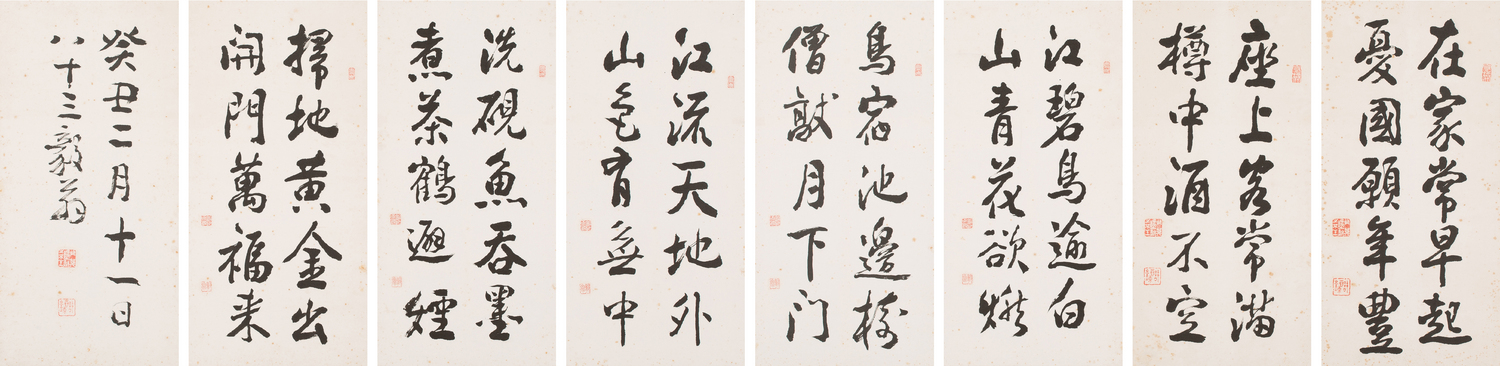 在家常早起
憂國願年豊
座上客常滿
樽中酒不空
江碧鳥逾白
山青花欲燃
鳥宿池邊樹
僧敲月下门
江流天地外
山色有無中
洗硯魚呑墨
煮茶鶴避煙
掃地黄金出
開門萬福来
癸丑二月十一日
八十三毅翁